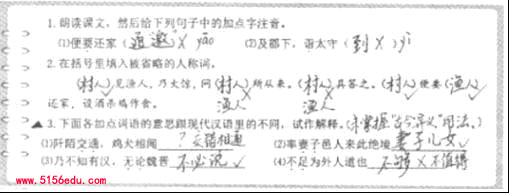 1. 朗读课文，然后给下列句子中的加点字注音。
(1)便要还家（通邀）X yāo (2)及郡下，诣太守（到X）yì
2. 在括号里填入被省略的人称词。
（村人）见渔人，乃大惊，问（村人）所从来。（村人）具答之。（村人）便要（渔人）
还家，设酒杀鸡作食。 渔人 渔人
▲3. 下面各加点词语的意思跟现代汉语里的不同，试作解释。（未掌握"古今异义"用法。）
(1)阡陌交通，鸡犬相闻 ？交错相通 (2)率妻子邑人来此绝境 妻子儿女✓
(3)乃不知有汉，无论魏晋 不必说✓ (4)不足为外人道也 不够X不值得
www.5156edu.com